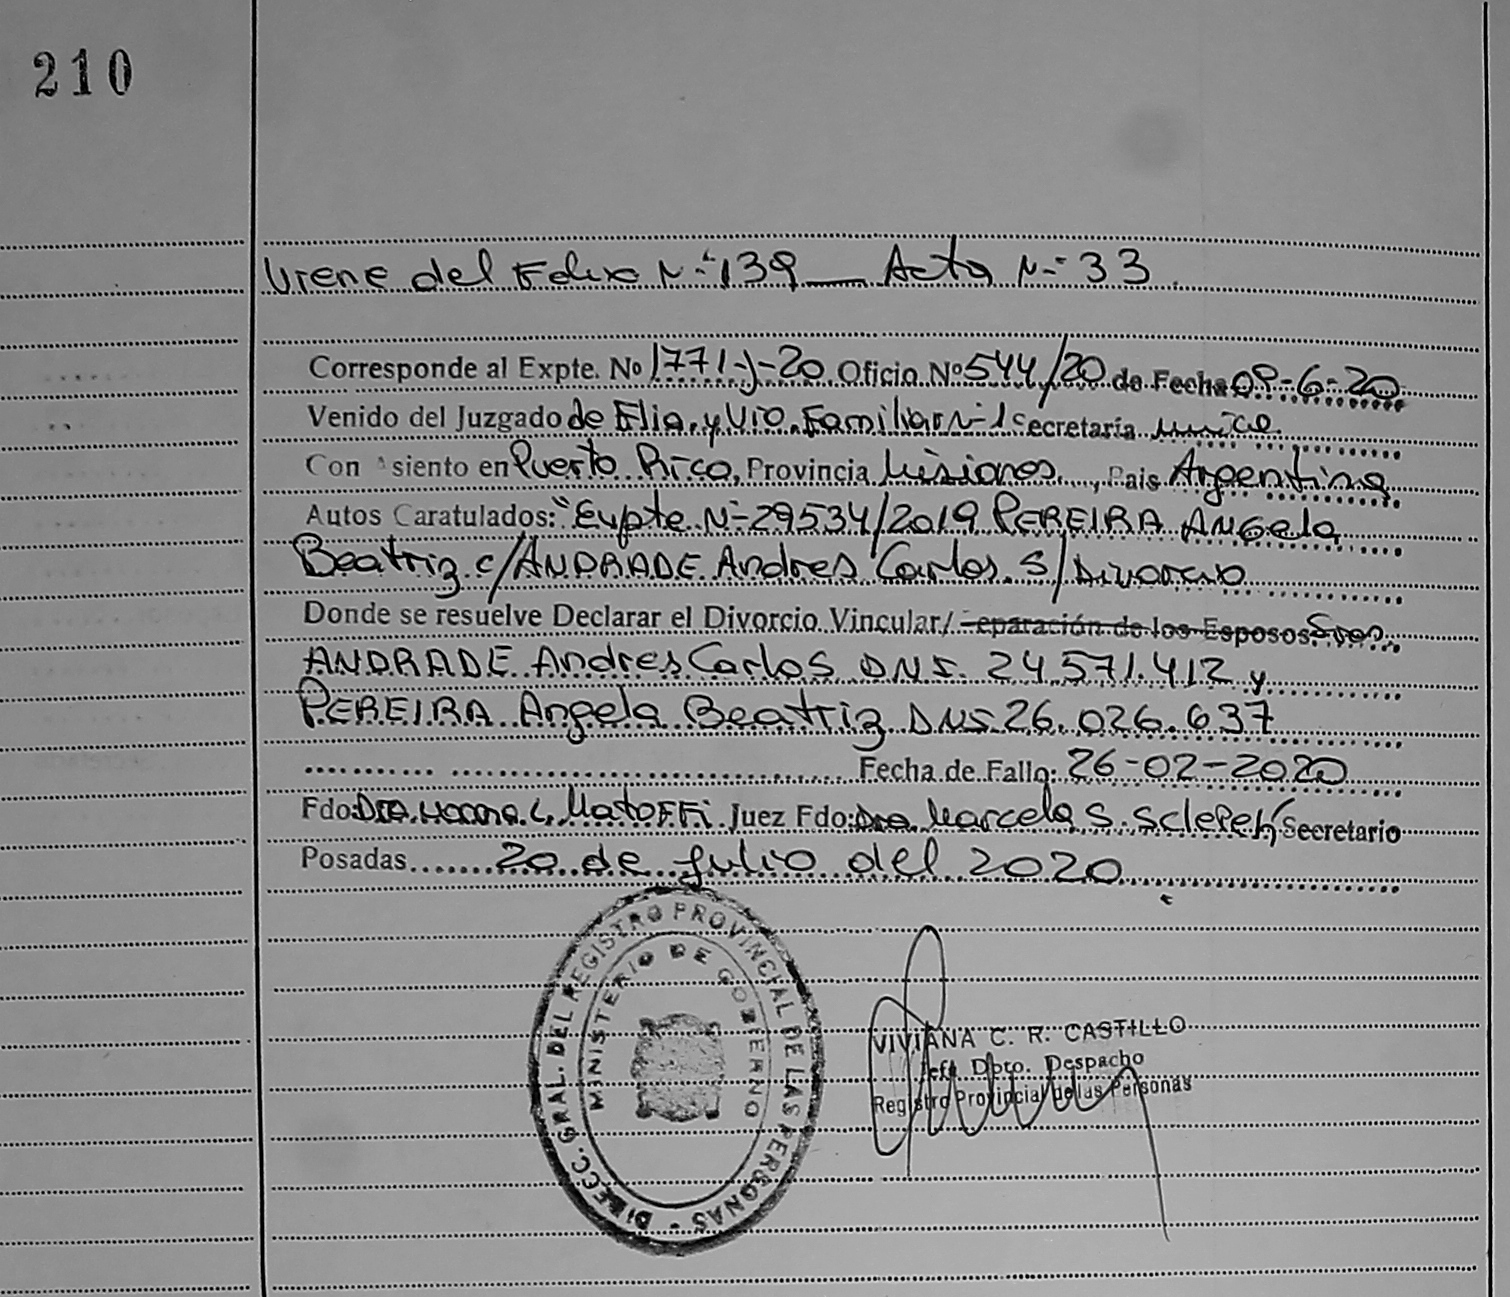 210
Viene del Folio N° 139 — Acta N° 33
Corresponde al Expte. No 1771-J-20 Oficio Nº 544/20 de Fecha 09-6-20
Venido del Juzgado de Flia. y Vio. Familiar N° 1 Secretaría unica
Con asiento en Puerto Rico, Provincia Misiones, Pais Argentina
Autos Caratulados: "Expte N° 29534/2019 PEREIRA Angela
Beatriz c/ANDRADE Andres Carlos S/Divorcio
Donde se resuelve Declarar el Divorcio Vincular/ eparación de los Esposos Sres.
ANDRADE Andres Carlos DNI. 24.571.412 y
PEREIRA Angela Beatriz DNI 26.026.637
Fecha de Fallo: 26-02-2020
Fdo: Dra. L. Juez Fdo: Dra. Marcela S. Secretario
Posadas 20 de Julio del 2020
DIRECC. GRAL. DEL REGISTRO PROVINCIAL DE LAS PERSONAS -
MINISTERIO DE GOBIERNO
VIVIANA C. R. CASTILLO
Jefa Dpto. Despacho
Registro Provincial de las Personas